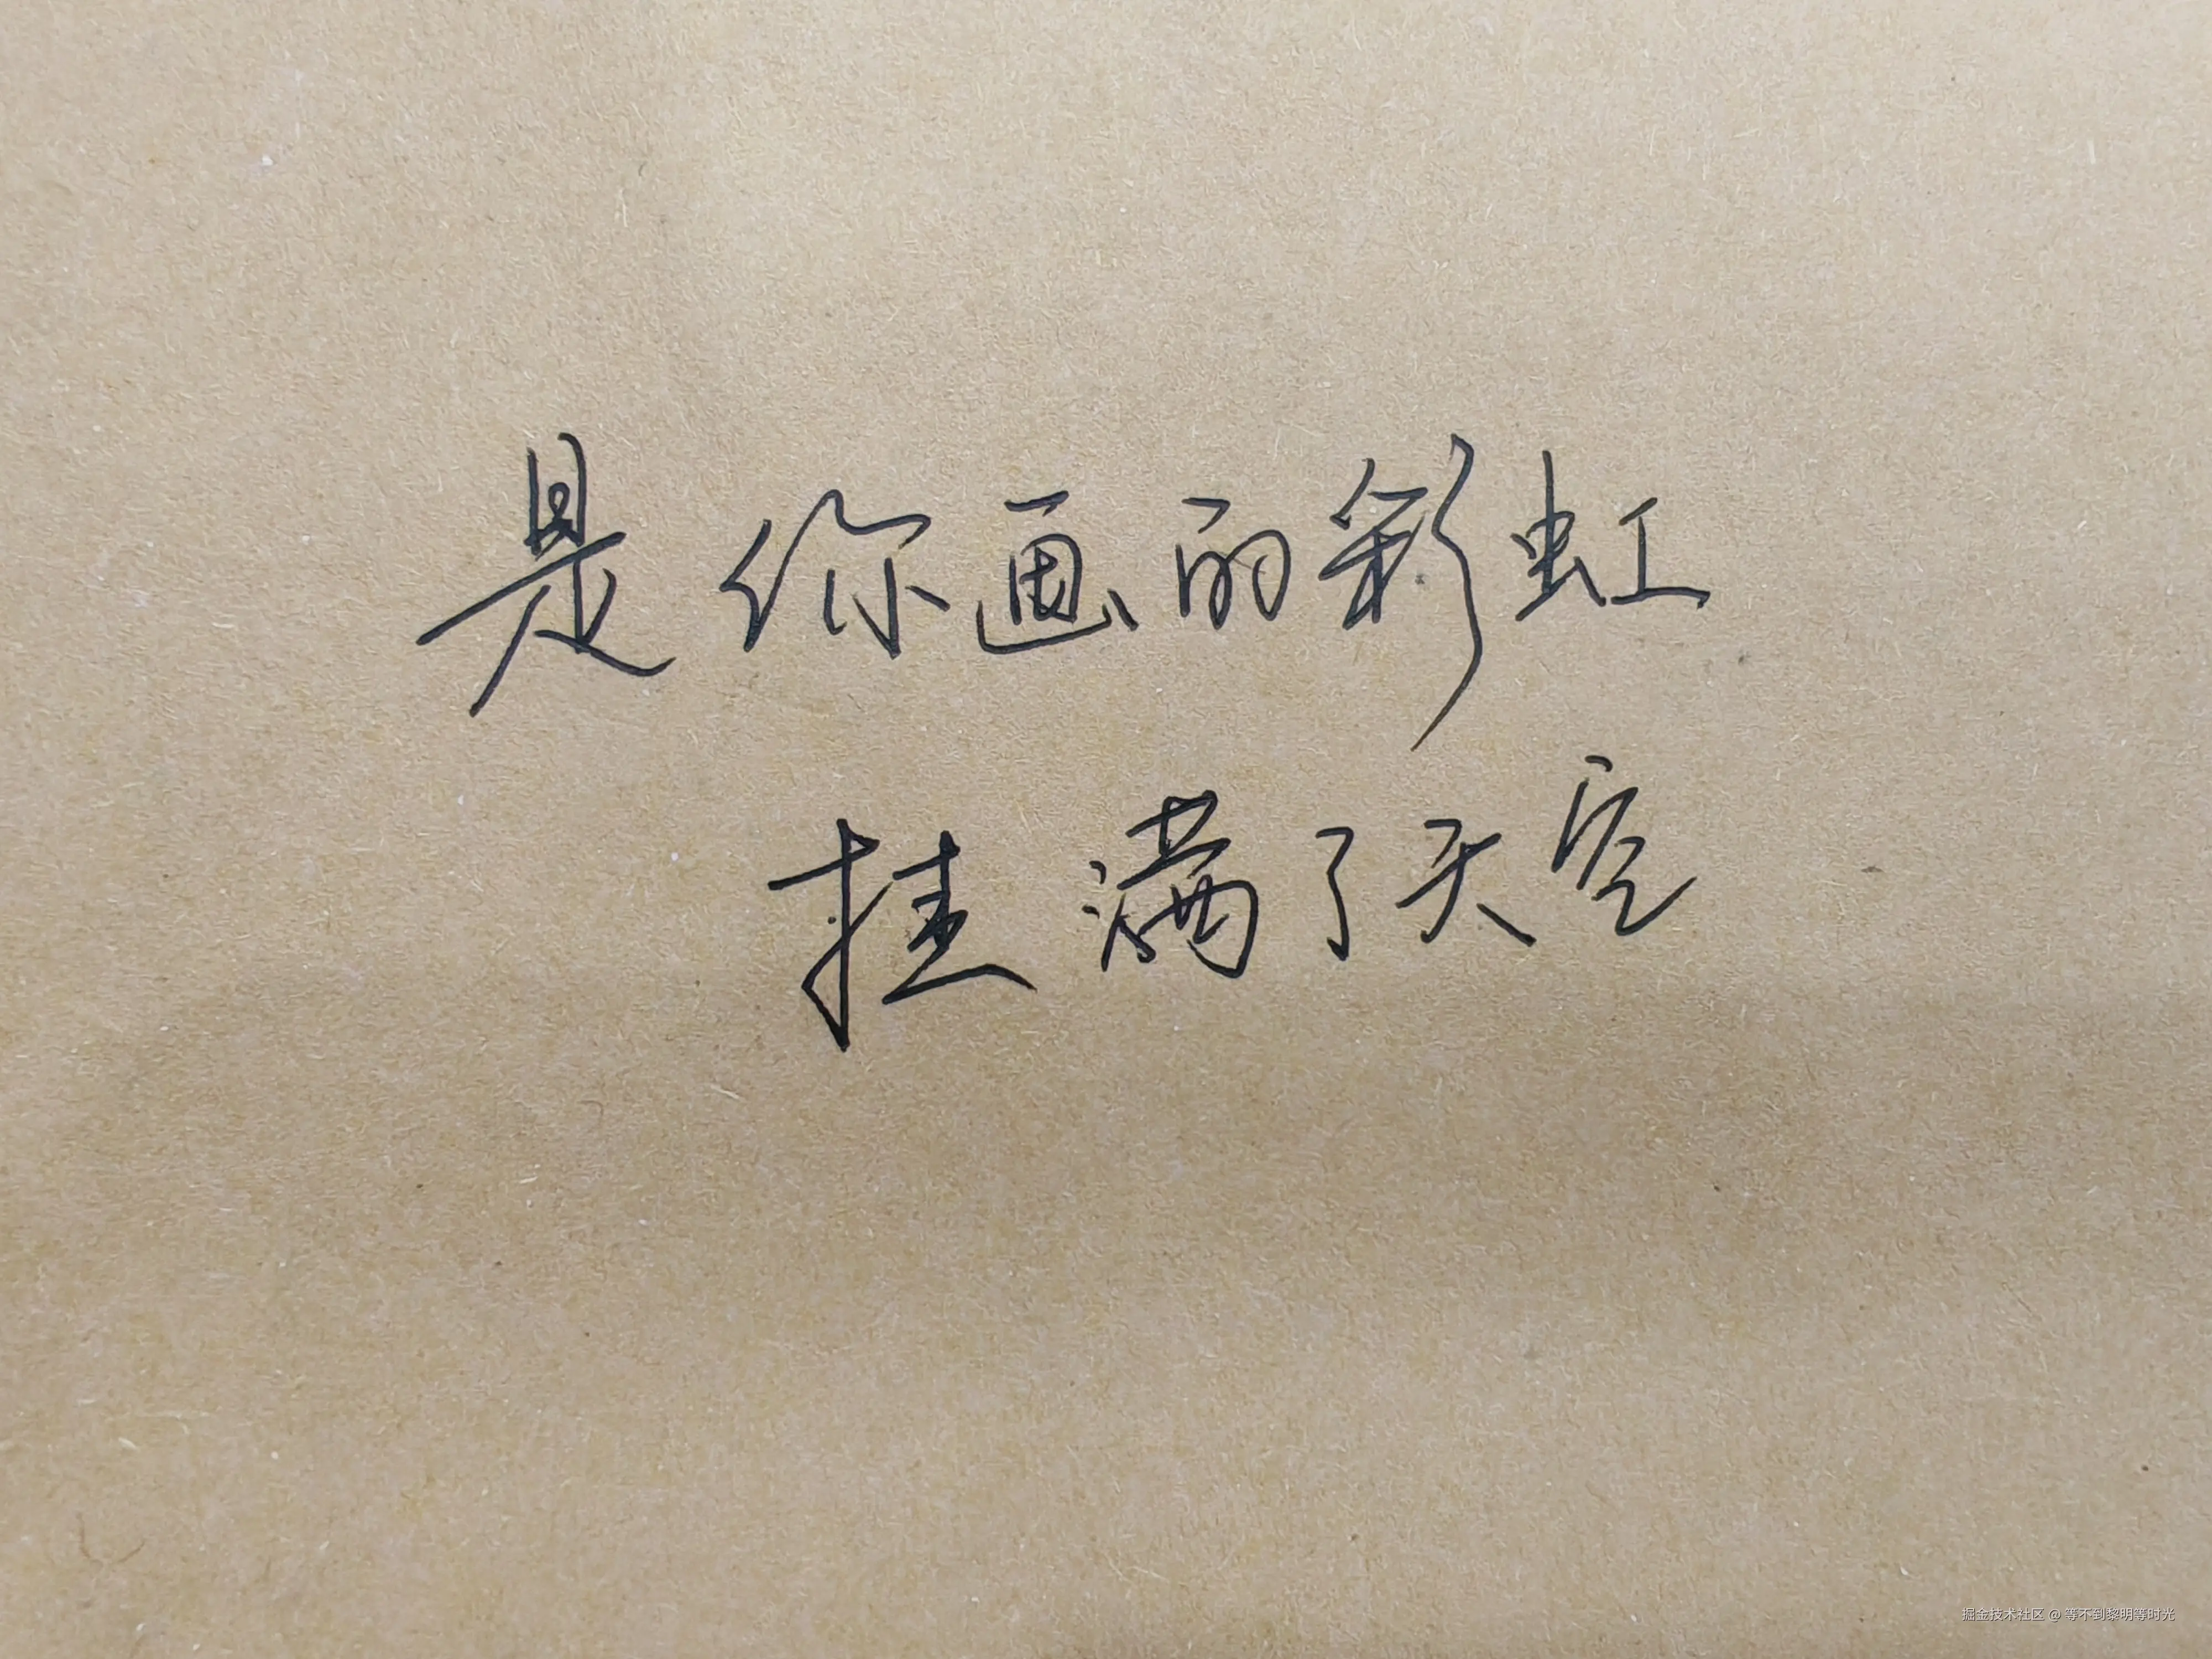 是你画的彩虹
挂满了天空
掘金技术社区 @ 等不到黎明等时光